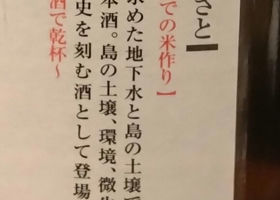 さと
での米作り】
求めた地下水と島の土壌で
本酒。島の土壌、環境、微生
史を刻む酒として登場
酒で乾杯～